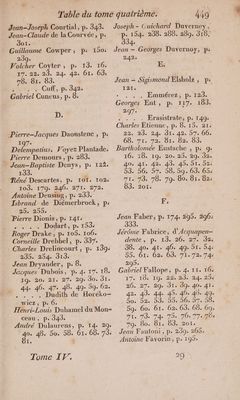 Table du tome quatrième. 449
Jean-Joseph Courtial, p. 343.
Jean-Claude de la Courvée, p.
301.
Guillaume Cowper, p. 150.
239.
Volcher Coyter, p. 13. 16.
17. 22. 23. 24. 42. 61. 63.
78. 81. 83.
. . . . Cuff, p. 342.
Gabriel Cuneus, p. 8.
D.
Pierre-Jacques Daonstene, p.
197.
Delempatius, Voyez Plantade.
Pierre Demours, p. 283.
Jean-Baptiste Denys, p. 122.
133.
Réné Descartes, p. 101. 102.
103. 179. 246. 271. 272.
Antoine Deusing, p. 233.
Isbrand de Diemerbrock, p.
25. 255.
Pierre Dionis, p. 141.
. . . . Dodart, p. 153.
Roger Drake, p. 105. 106.
Corneille Drebbel, p. 337.
Charles Drelincourt, p. 139.
235. 254. 313.
Jean Dryander, p. 8.
Jacques Dubois, p. 4. 17. 18.
19. 20. 21. 27. 29. 30. 31.
44. 46. 47. 48. 49. 59. 62.
. . . . Dudith de Horeko-
wiez, p. 6.
Henri-Louis Duhamel du Mon-
ceau, p. 343.
André Dulaurens, p. 14. 29.
40. 48. 50. 58. 61. 68. 73.
81.
Joseph-Guichard Duverney,
p. 154. 238. 288. 289. 318.
334.
Jean-Georges Duvernoy, p.
242.
E.
Jean-Sigismond Elsholz, p.
121.
. . . . Emmérez, p. 123.
Georges Ent, p. 117. 183.
297.
. . . . Erasistrate, p. 149.
Charles Etienne, p. 8. 15. 21.
22. 23. 24. 31. 42. 57. 66.
68. 71. 72. 81. 82. 83.
Bartholomée Eustache, p. 9.
16. 18. 19. 20. 25. 29. 32.
40. 41. 42. 43. 45. 51. 52.
53. 56. 57. 58. 59. 63. 65.
71. 73. 78. 79. 80. 81. 82.
83. 201.
F.
Jean Faber, p. 174. 295. 296.
333.
Jérôme Fabrice, d'Acquapen-
dente, p. 13. 26. 27. 32.
38. 40. 41. 46. 49. 51. 54.
55. 61. 62. 63. 71. 72. 74.
295.
Gabriel Fallope, p. 4. 11. 16.
17. 18. 19. 22. 23. 24. 25.
26. 27. 29. 31. 39. 40. 41.
42. 43. 44. 45. 46. 48. 49.
50. 52. 53. 55. 56. 57. 58.
59. 60. 61. 62. 63. 68. 69.
71. 73. 74. 75. 76. 77. 78.
79. 80. 81. 83. 201.
Jean Fantoni, p. 239. 265.
Antoine Favorin, p. 195.
Tome IV. 29